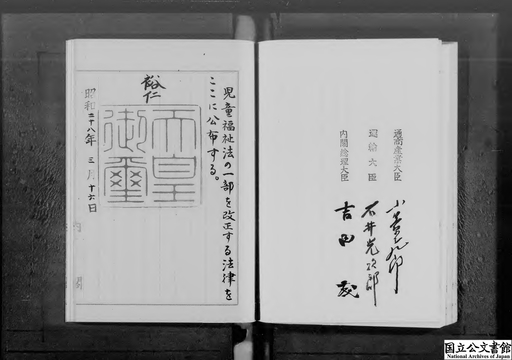 通商産業大臣
運輸大臣
石井光次郎
内閣総理大臣
吉田茂
児童福祉法の一部を改正する法律を
ここに公布する。
裕仁
天皇
御璽
昭和二十八年三月十六日
国立公文書館
National Archives of Japan